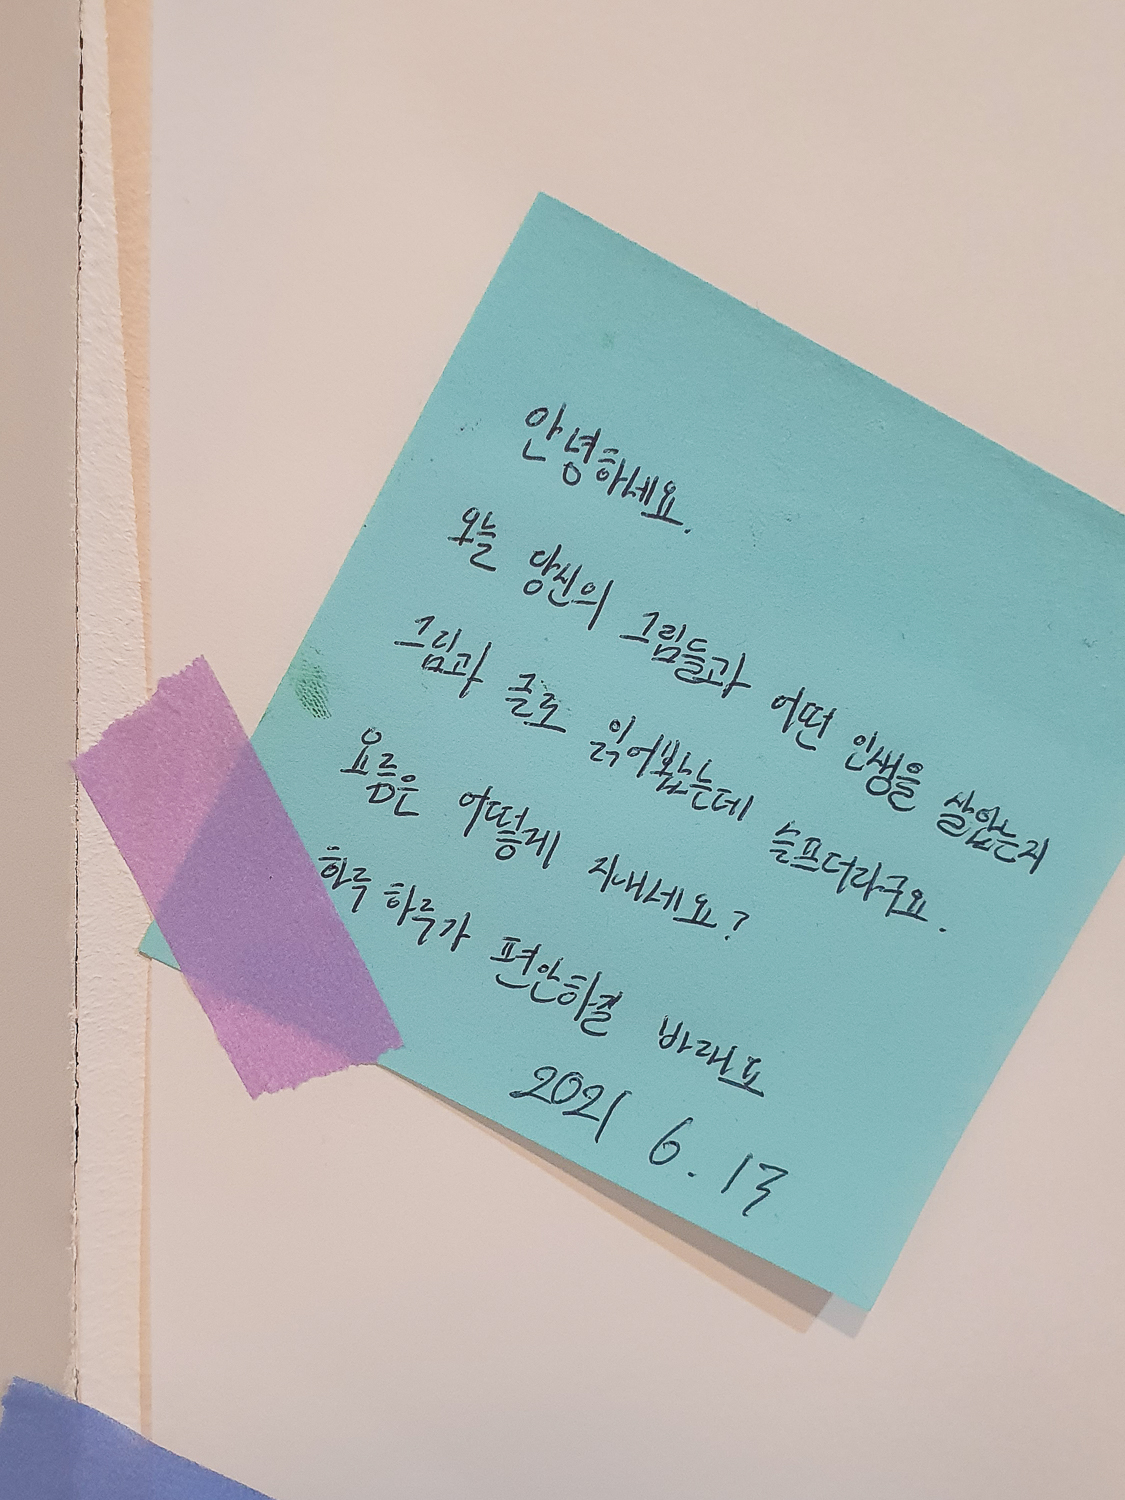 안녕하세요.
오늘 당신의 그림들과 어떤 인생을 살았는지
그림과 글로 읽어봤는데 슬프더라구요.
요즘은 어떻게 지내세요?
하루 하루가 편안하길 바래요
2021 6. 13